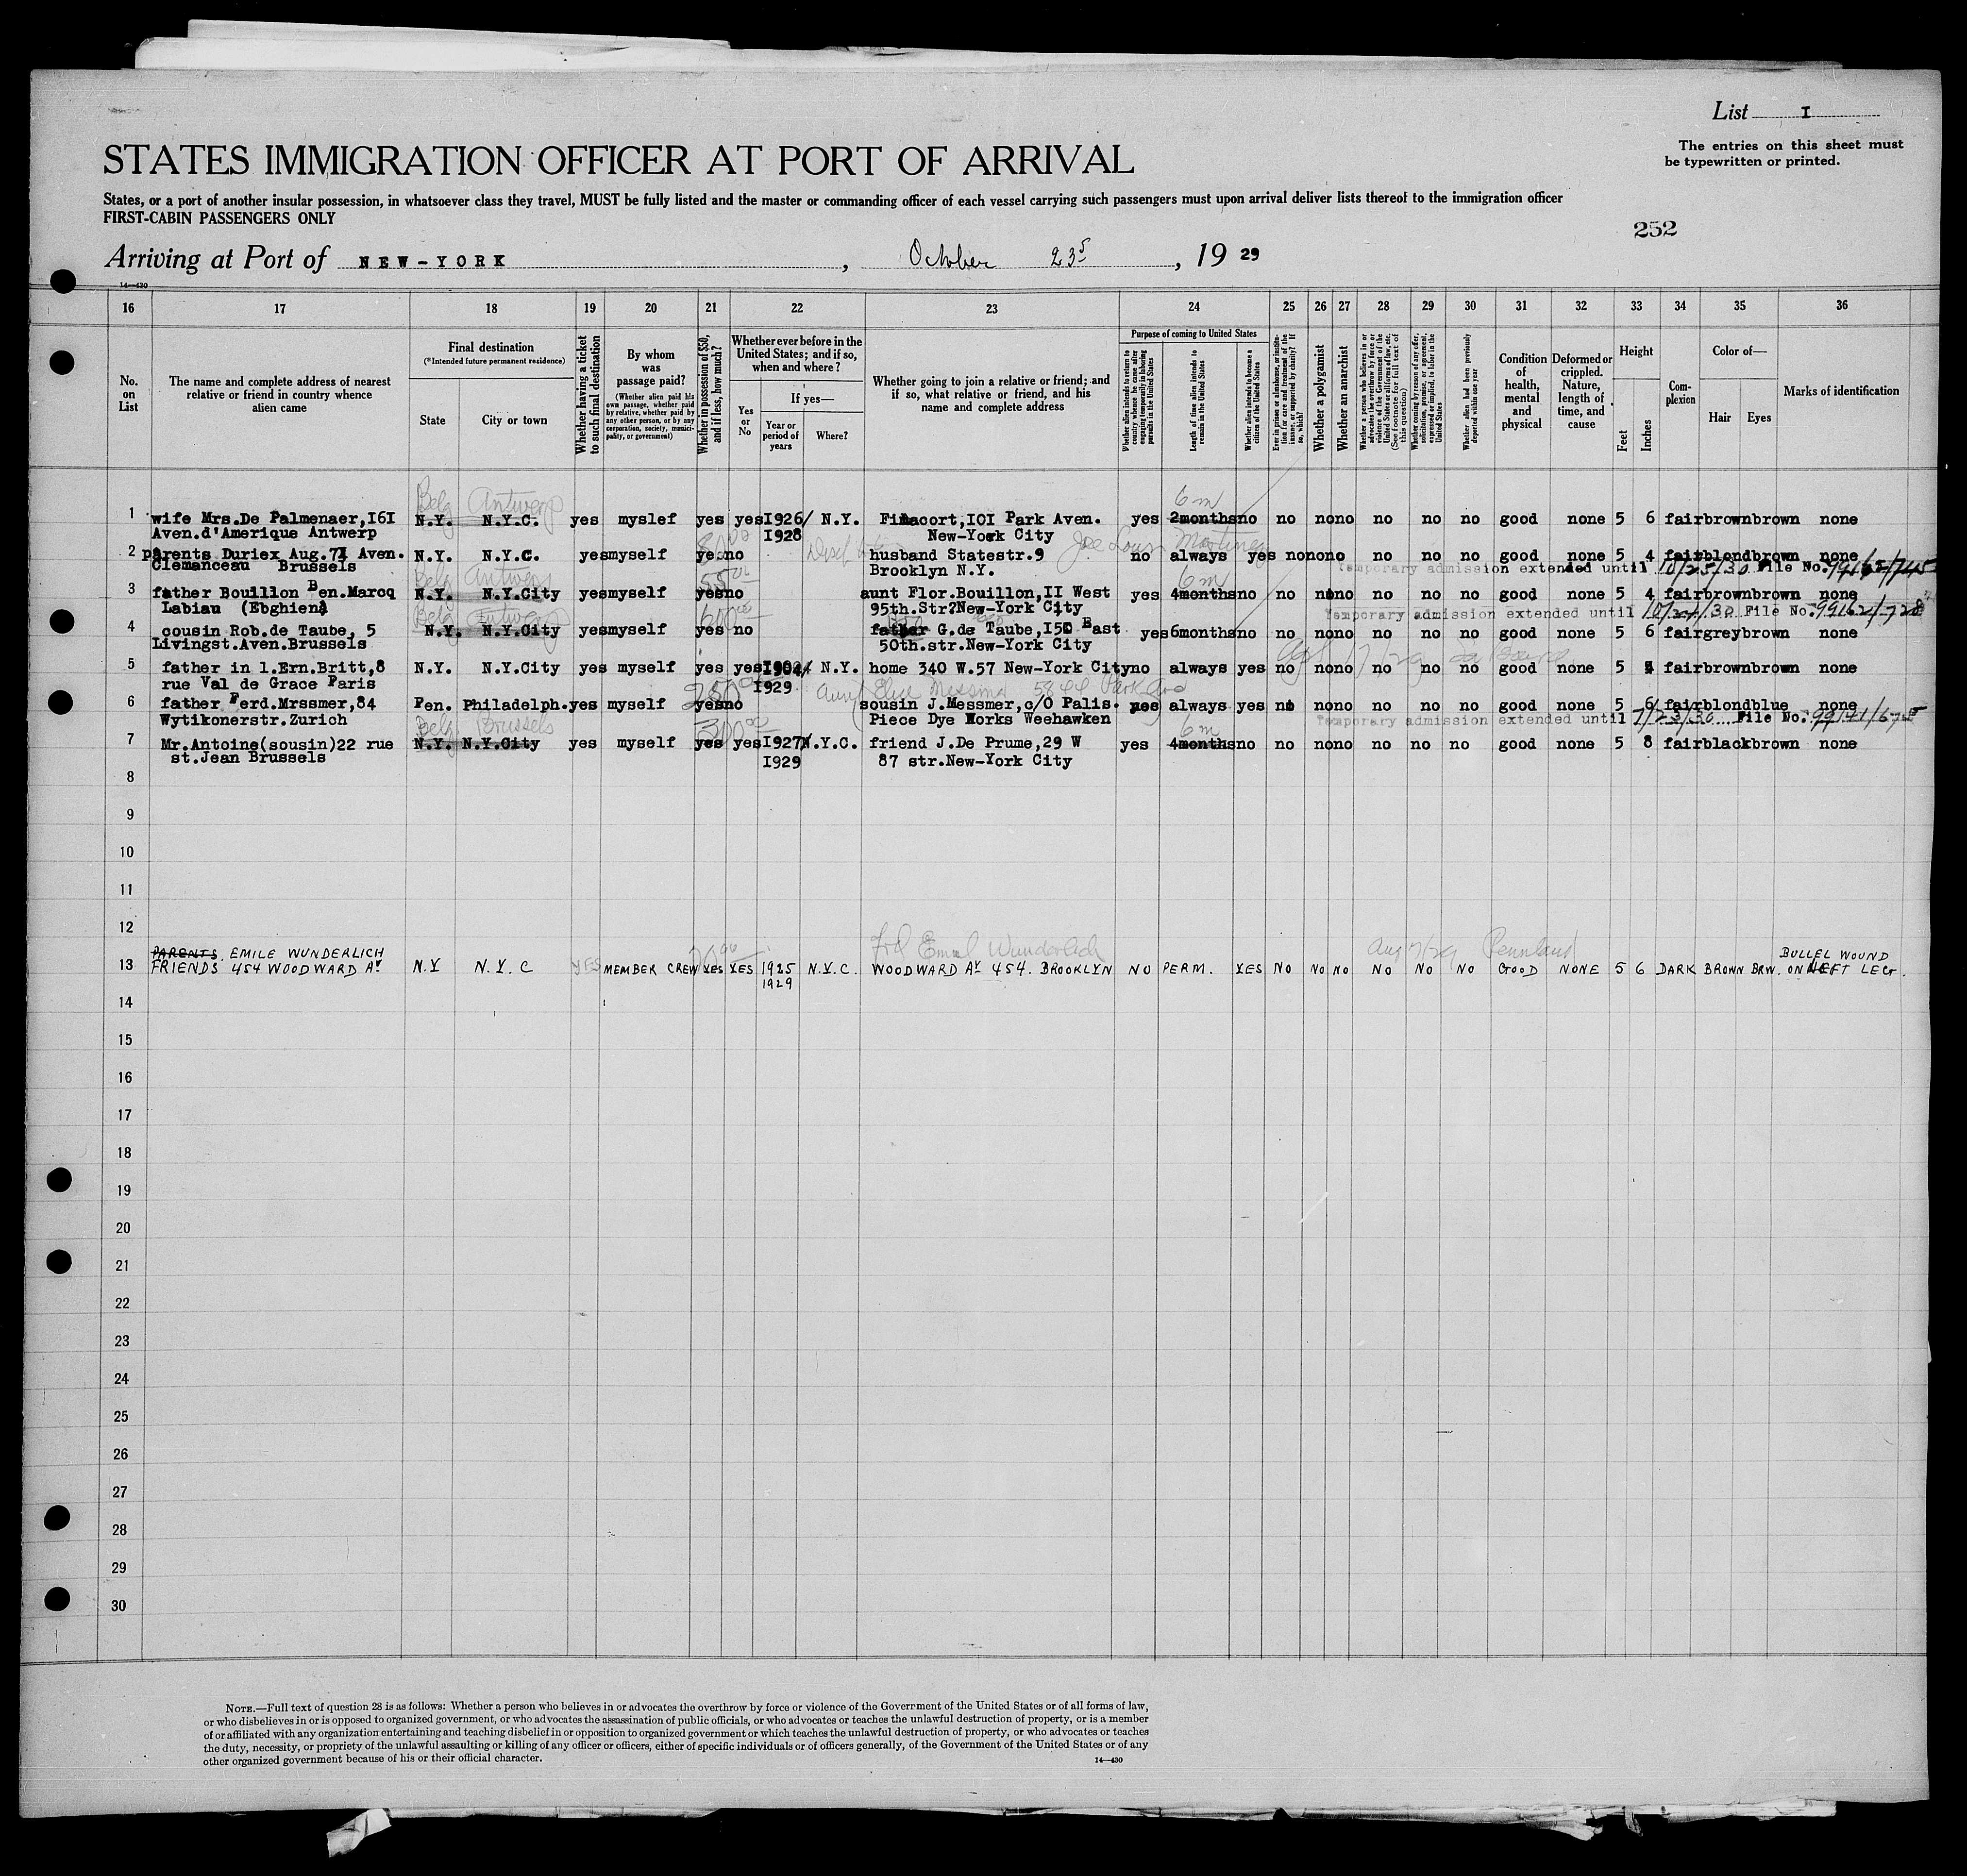 List I
The entries on this sheet must
be typewritten or printed.
STATES IMMIGRATION OFFICER AT PORT OF ARRIVAL
States, or a port of another insular possession, in whatsoever class they travel, MUST be fully listed and the master or commanding officer of each vessel carrying such passengers must upon arrival deliver lists thereof to the immigration officer
FIRST-CABIN PASSENGERS ONLY
252
Arriving at Port of NEW-YORK, October 23, 19 29
14—430
16 17 18 19 20 21 22 23 24 25 26 27 28 29 30 31 32 33 34 35 36
No. on List
The name and complete address of nearest relative or friend in country whence alien came
Final destination
(*Intended future permanent residence)
State
City or town
Whether having a ticket to such final destination
By whom was passage paid?
(Whether alien paid his own passage, whether paid by relative, whether paid by any other person, or by any corporation, society, municipality, or government)
Whether in possession of $50, and if less, how much?
Whether ever before in the United States; and if so, when and where?
Yes or No
If yes—
Year or period of years
Where?
Whether going to join a relative or friend; and if so, what relative or friend, and his name and complete address
Purpose of coming to United States
Whether alien intends to return to country whence he came after engaging temporarily in laboring pursuits in the United States
Length of time alien intends to remain in the United States
Whether alien intends to become a citizen of the United States
Ever in prison or almshouse, or institution for care and treatment of the insane, or supported by charity? If so, which?
Whether a polygamist
Whether an anarchist
Whether a person who believes in or advocates the overthrow by force or violence of the Government of the United States or all forms of law, etc. (See footnote for full text of this question)
Whether coming by reason of any offer, solicitation, promise, or agreement, expressed or implied, to labor in the United States
Whether alien had been previously deported within one year
Condition of health, mental and physical
Deformed or crippled. Nature, length of time, and cause
Height
Feet
Inches
Complexion
Color of—
Hair
Eyes
Marks of identification
Belg Antwerp 6 m
1 wife Mrs.De Palmenaer,I6I N.Y. N.Y.C. yes myslef yes yes I926/ N.Y. Finacort,IOI Park Aven. yes 2months no no no no no no no good none 5 6 fair brown brown none
Aven.d'Amerique Antwerp I928 New-York City
2 parents Duriex Aug.71 Aven. N.Y. N.Y.C. yes myself yes no husband Statestr.9 no always yes no no no no no no good none 5 4 fair blond brown none
Clemanceau Brussels Brooklyn N.Y. Temporary admission extended until 10/23/30 File No. 99162/745
Belg Antwerp 55 6 m
3 father Bouillon Ben.Marcq N.Y. N.Y.City yes myself yes no aunt Flor.Bouillon,II West yes 4months no no no no no no no good none 5 4 fair brown brown none
Labiau (Ebghien) 95th.Str?New-York City Temporary admission extended until File No. 99162/728
Belg Antwerp 600
4 cousin Rob.de Taube, 5 N.Y. N.Y.City yes myself yes no father G.de Taube,I50 East yes 6months no no no no no no no good none 5 6 fair grey brown none
Livingst.Aven.Brussels 50th.str.New-York City
5 father in l.Ern.Britt,8 N.Y. N.Y.City yes myself yes yes I904/ N.Y. home 340 W.57 New-York City no always yes no no no no no no good none 5 fair brown brown none
rue Val de Grace Paris I929
250 aunt Elise Messma 5844 Park Ave
6 father Ferd.Mrssmer,84 Pen. Philadelph. yes myself yes no sousin J.Messmer,c/O Palis. yes always yes no no no no no no good none 5 6 fair blond blue none
Wytikonerstr.Zurich Piece Dye Works Weehawken Temporary admission extended until 7/23/30 File No. 99141/675
Belg Brussels 300 6 m
7 Mr.Antoine(sousin)22 rue N.Y. N.Y.City yes myself yes yes I927 N.Y.C. friend J.De Prume,29 W yes 4months no no no no no no no good none 5 8 fair black brown none
st.Jean Brussels I929 87 str.New-York City
8
9
10
11
12
Frd Emil Wunderlich Aug 7/29 Pennland
PARENTS. EMILE WUNDERLICH BULLEL WOUND
13 FRIENDS 454 WOODWARD Av N.Y N.Y.C YES MEMBER CREW YES YES 1925 N.Y.C. WOODWARD Av 454. BROOKLYN NO PERM. YES NO NO NO NO NO NO GOOD NONE 5 6 DARK BROWN BRW. ON LEFT LEG.
1929
14
15
16
17
18
19
20
21
22
23
24
25
26
27
28
29
30
NOTE.—Full text of question 28 is as follows: Whether a person who believes in or advocates the overthrow by force or violence of the Government of the United States or of all forms of law,
or who disbelieves in or is opposed to organized government, or who advocates the assassination of public officials, or who advocates or teaches the unlawful destruction of property, or is a member
of or affiliated with any organization entertaining and teaching disbelief in or opposition to organized government or which teaches the unlawful destruction of property, or who advocates or teaches
the duty, necessity, or propriety of the unlawful assaulting or killing of any officer or officers, either of specific individuals or of officers generally, of the Government of the United States or of any
other organized government because of his or their official character.
14—430